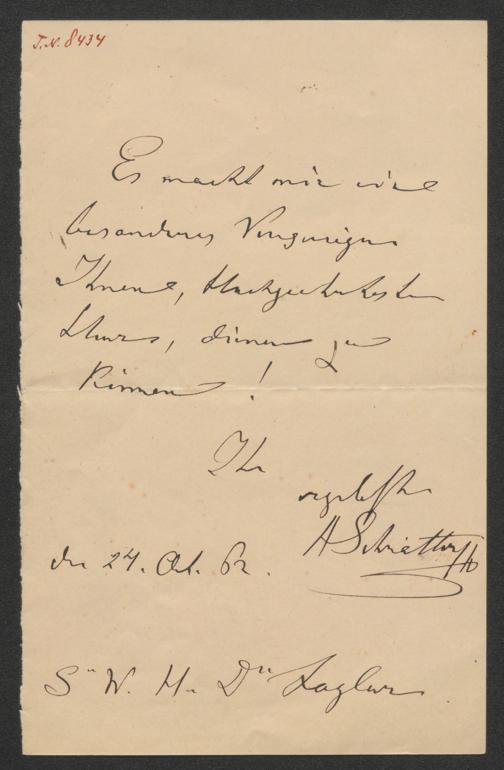 I.N. 8434
Es macht mir ein
besonderes Vergnügen
Ihnen, Hochgeehrtester
Herr, dienen zu
können!
Ihr
ergebenster
A Schrötter
den 24. Oct. 62.
Sr W. H. Dr